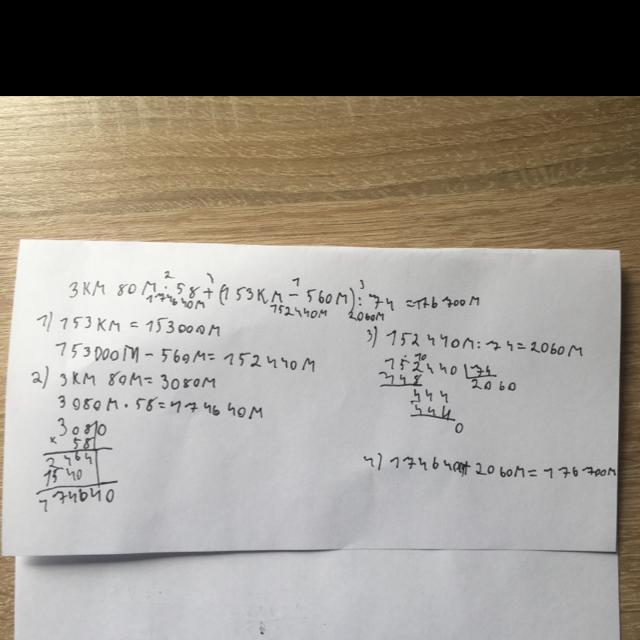 3 КМ 80 М · 58 + (153 КМ − 560 М) : 74 = 176 700 М
2 4 1 3
174640М 152440М 2060М
1) 153 КМ = 153000М
153000М − 560М = 152440М
2) 3 КМ 80М = 3080М
3080М · 58 = 174640М
3080
× 58
2464
1540
174640
3) 152440М : 74 = 2060М
152440 74
148 2060
444
444
0
4) 174640М + 2060М = 176700М